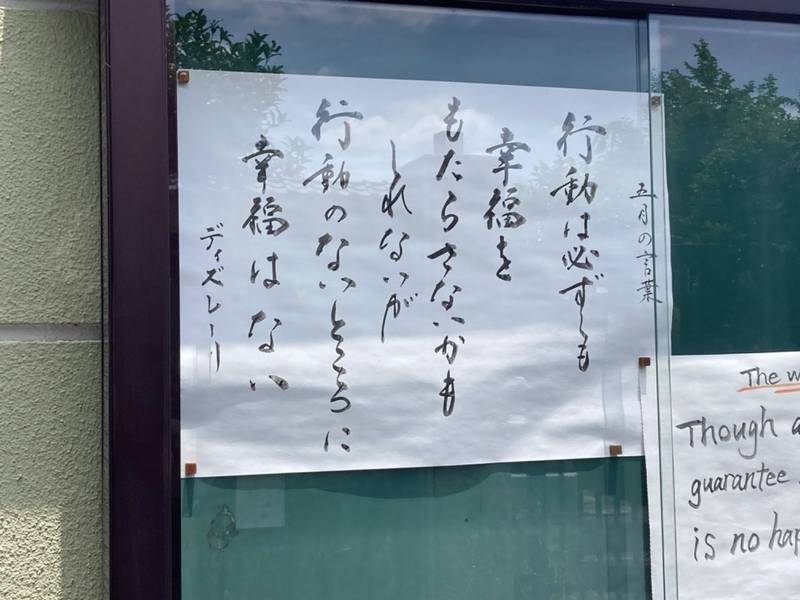 五月の言葉
行動は必ずしも
幸福を
もたらさないかも
しれないが
行動のないところに
幸福はない
ディズレーリ
The
Though
guarantee
is no